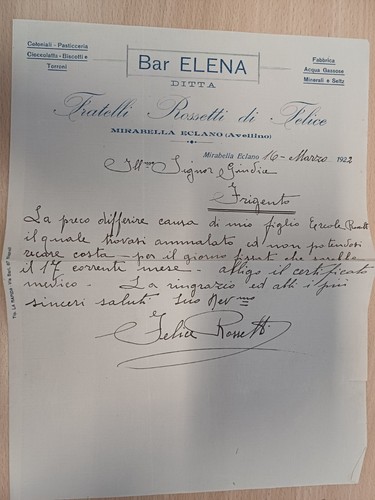 Coloniali - Pasticceria
Cioccolatta - Biscotti e
Torroni
Bar ELENA
DITTA
Fabbrica
Acqua Gassose
Minerali e Seltz
Fratelli Rossetti di Felice
MIRABELLA ECLANO (Avellino)
Mirabella Eclano 16 - Marzo 1922
Ill.mo Signor Giudice
Frigento
La preco differire causa di mio figlio Ercole Rossetti
il quale trovasi ammalato, ed non potendosi
recare costà - per il giorno fissat che sarebbe
il 17 corrente mese - alligo il certificato
medico - La ringrazio ed alti i più
sinceri saluti Suo Dev.mo
Felice Rossetti